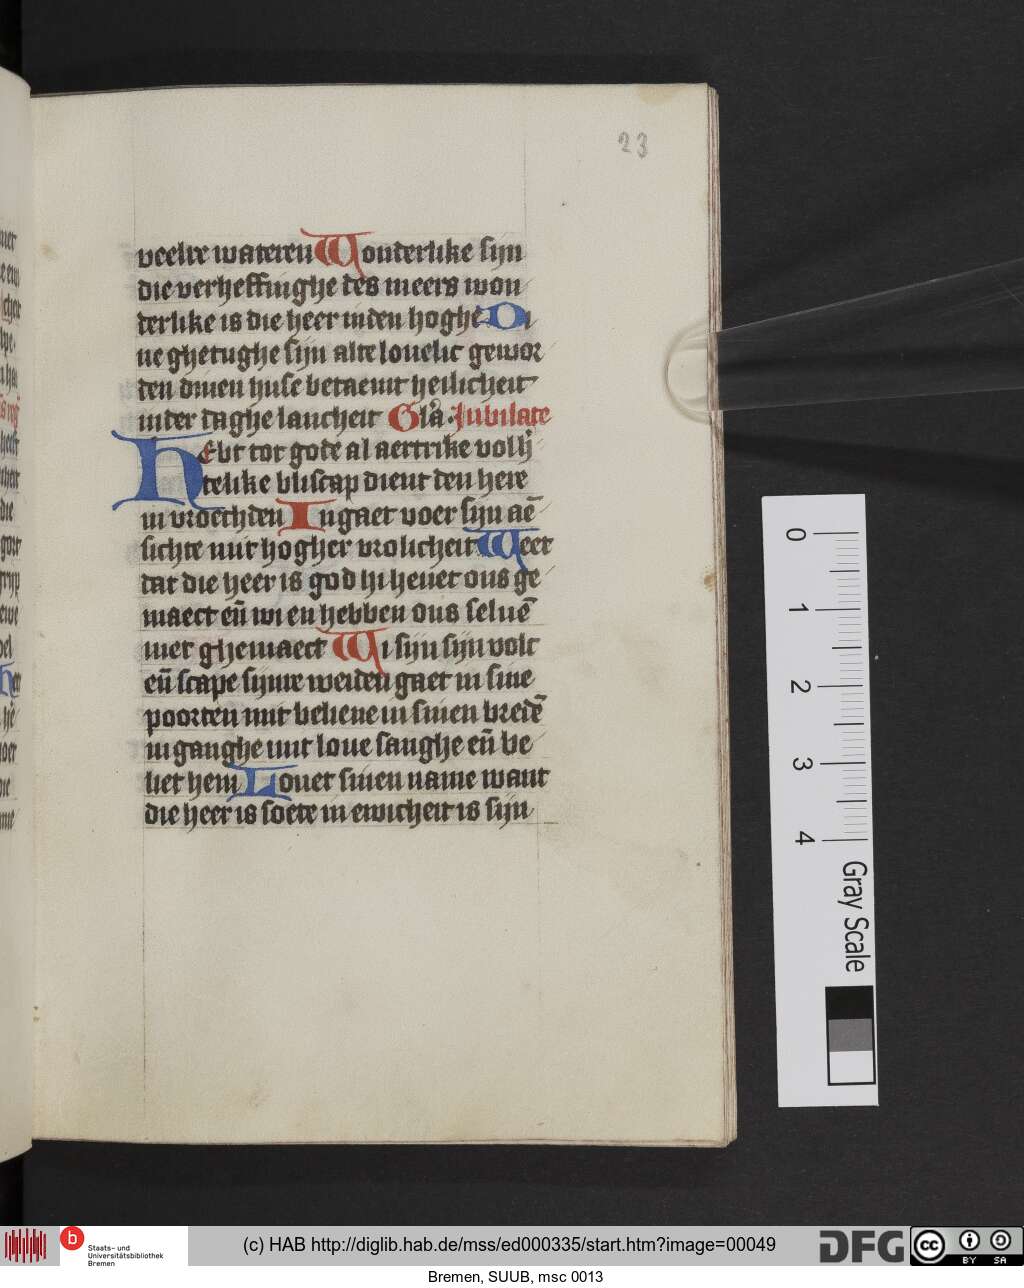 23
veelre wateren Wonderlike sijn
die verheffinghe des meers won
derlike is die heer inden hoghē Di
ne ghetughe sijn alte louelic gewor
den dinen huse betaemt heilicheit
inder daghe lancheit Gl'a. Jubilate
HEbt tot gode al aertrike volly
telike bliscap dient den here
in vroechden Ingaet voer sijn aē
sichte mit hogher vrolicheit Weet
dat die heer is god hi heuet ons ge
maect eñ wi en hebben ons seluē
niet ghemaect Wi sijn sijn volc
eñ scape sijnre weiden gaet in sine
poorten mit beliene in sinen vredē
in ganghe mit loue sanghe eñ be
liet hem Louet sinen name want
die heer is soete in ewicheit is sijn
0
1
2
3
4
Gray Scale
b
Staats- und
Universitätsbibliothek
Bremen
(c) HAB http://diglib.hab.de/mss/ed000335/start.htm?image=00049
DFG
cc
BY SA
Bremen, SUUB, msc 0013